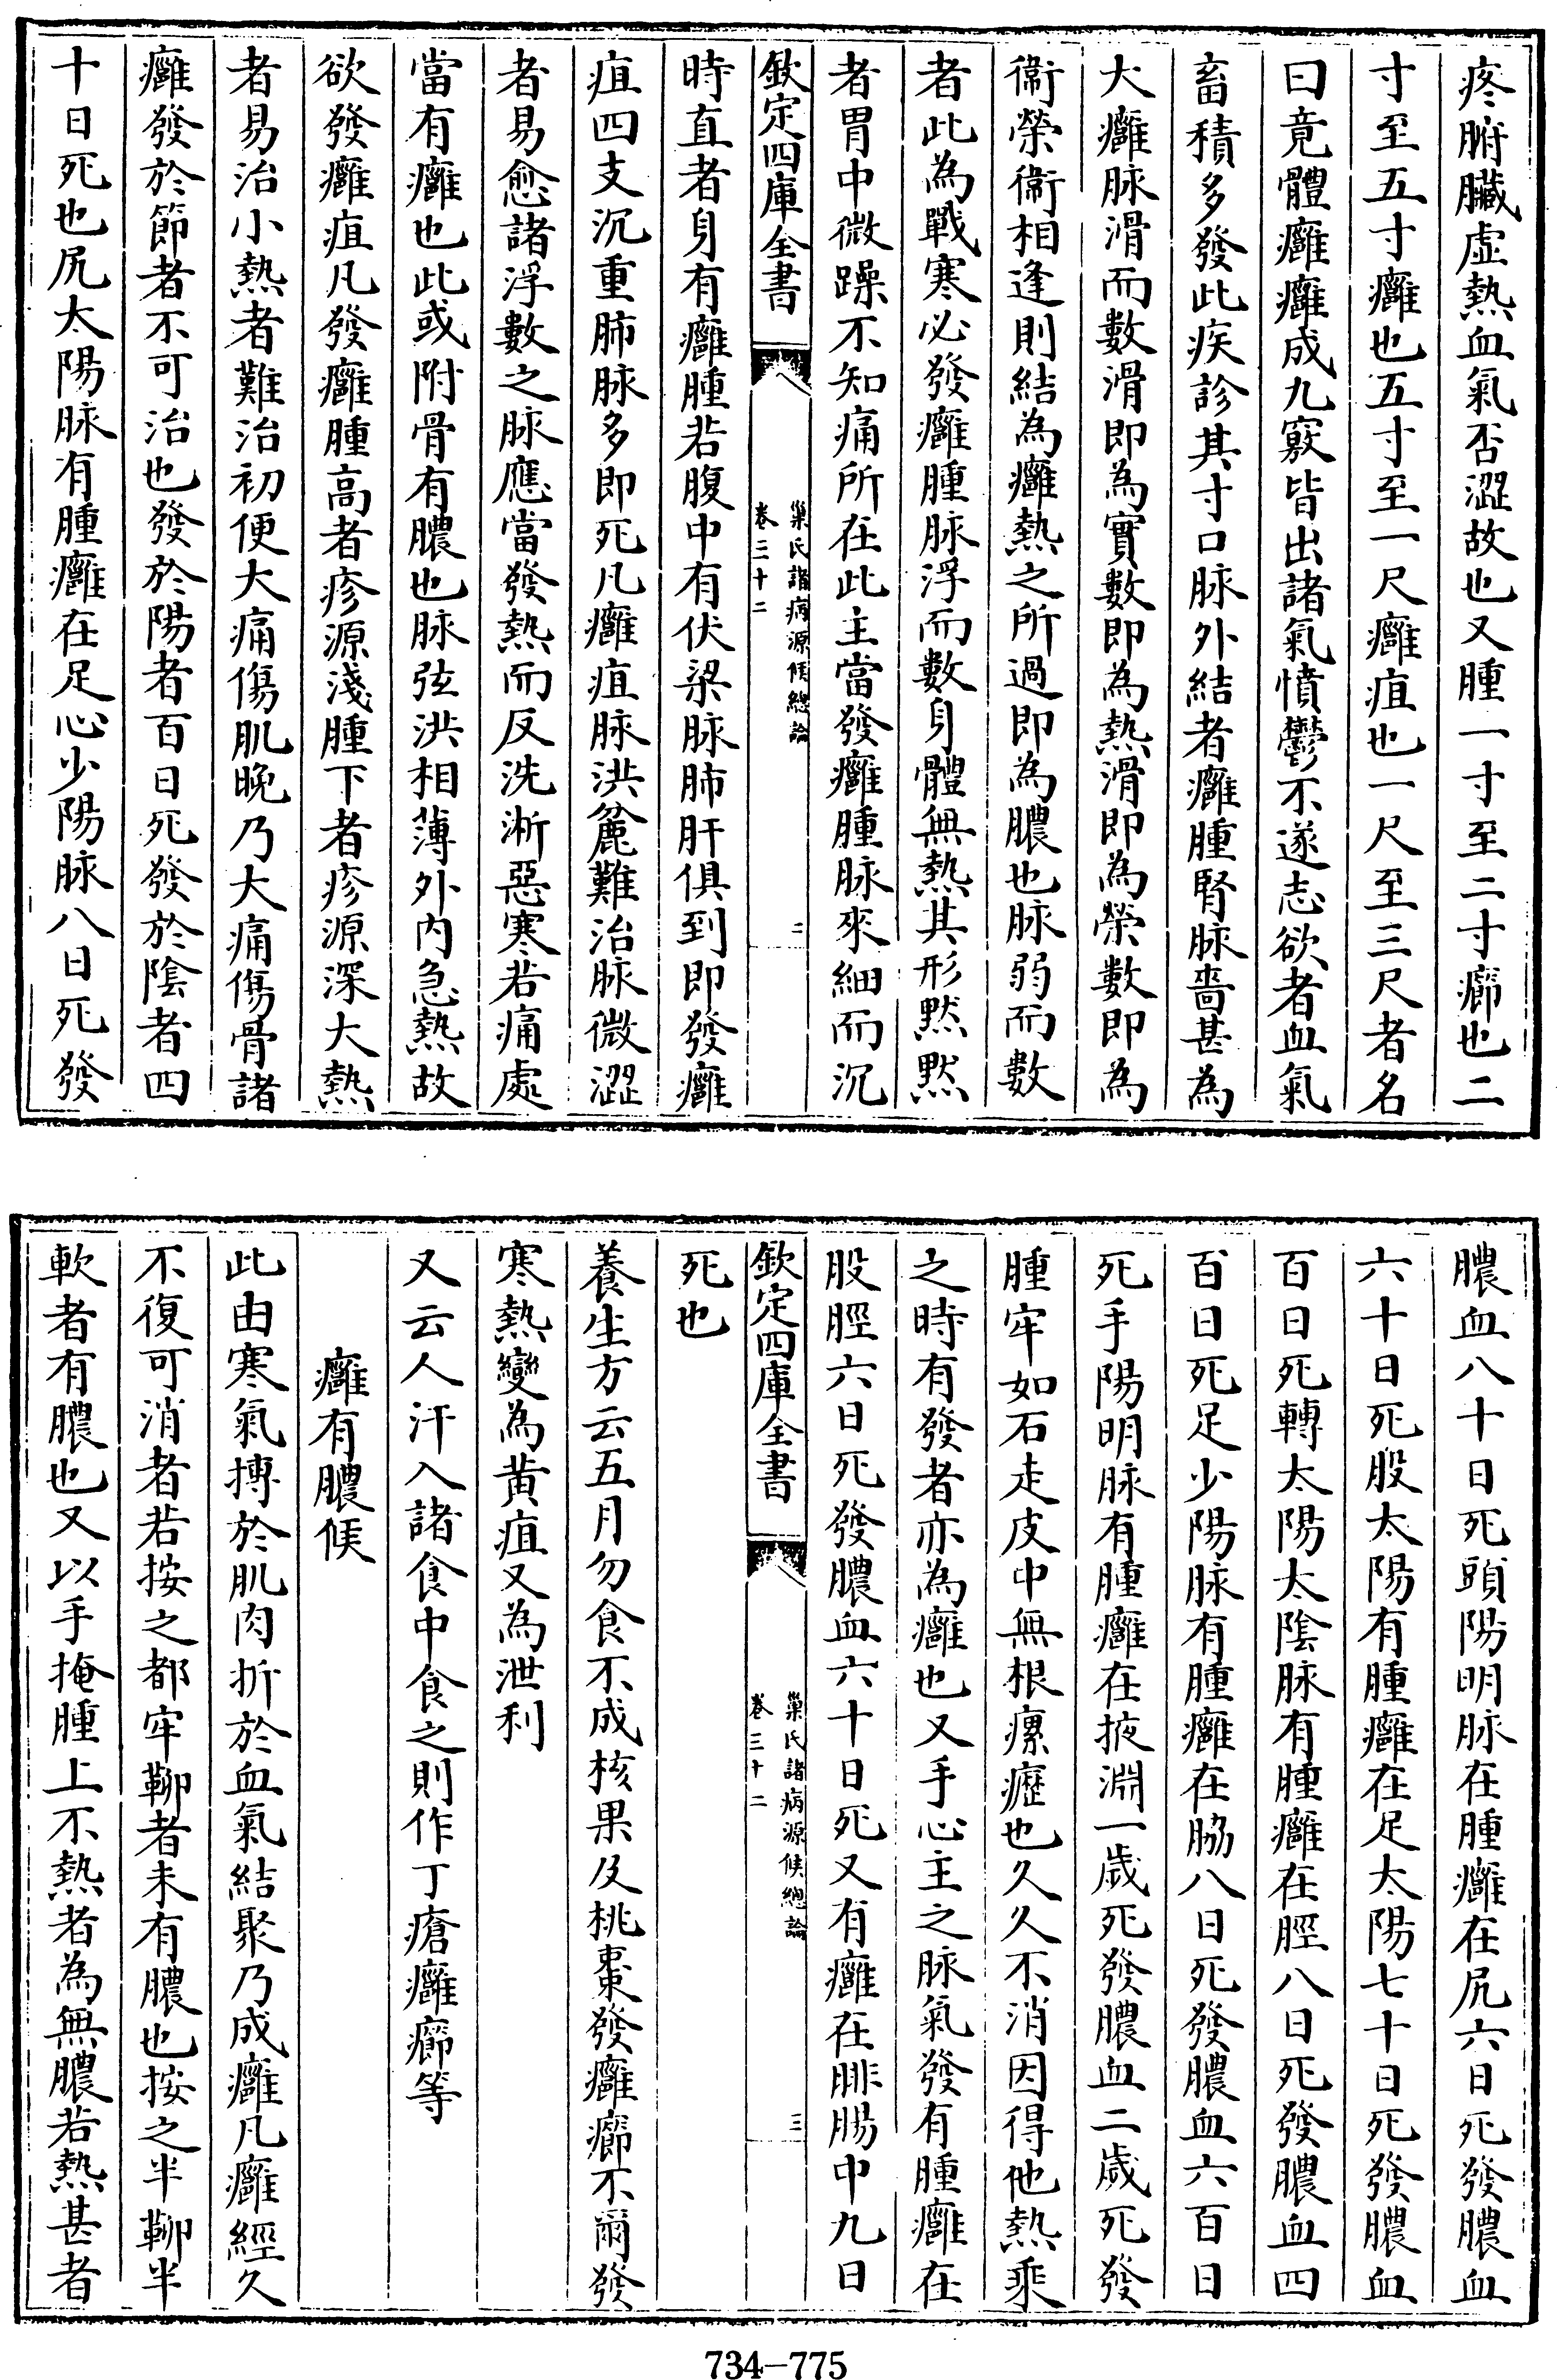 疼腑臟虛熱血氣否澀故也又腫一寸至二寸癤也二
寸至五寸癰也五寸至一尺癰疽也一尺至三尺者名
曰竟體癰癰成九竅皆出諸氣憤鬱不遂志欲者血氣
畜積多發此疾診其寸口脉外結者癰腫腎脉嗇甚為
大癰脉滑而數滑即為實數即為熱滑即為榮數即為
衞榮衞相逢則結為癰熱之所過即為膿也脉弱而數
者此為戰寒必發癰腫脉浮而數身體無熱其形黙黙
者胃中微躁不知痛所在此主當發癰腫脉來細而沉
欽定四庫全書
巢氏諸病源候總論
卷三十二
二
時直者身有癰腫若腹中有伏梁脉肺肝俱到即發癰
疽四支沉重肺脉多即死凡癰疽脉洪麄難治脉微澀
者易愈諸浮數之脉應當發熱而反洗淅惡寒若痛處
當有癰也此或附骨有膿也脉弦洪相薄外内急熱故
欲發癰疽凡發癰腫高者疹源淺腫下者疹源深大熱
者易治小熱者難治初便大痛傷肌晚乃大痛傷骨諸
癰發於節者不可治也發於陽者百日死發於陰者四
十日死也尻太陽脉有腫癰在足心少陽脉八日死發
膿血八十日死頭陽明脉在腫癰在尻六日死發膿血
六十日死股太陽有腫癰在足太陽七十日死發膿血
百日死轉太陽太陰脉有腫癰在脛八日死發膿血四
百日死足少陽脉有腫癰在脇八日死發膿血六百日
死手陽明脉有腫癰在掖淵一歲死發膿血二歲死發
腫牢如石走皮中無根瘰癧也久久不消因得他熱乘
之時有發者亦為癰也又手心主之脉氣發有腫癰在
股脛六日死發膿血六十日死又有癰在腓腸中九日
欽定四庫全書
巢氏諸病源候總論
卷三十二
三
死也
養生方云五月勿食不成核果及桃棗發癰癤不爾發
寒熱變為黄疸又為泄利
又云人汗入諸食中食之則作丁瘡癰癤等
癰有膿候
此由寒氣搏於肌肉折於血氣結聚乃成癰凡癰經久
不復可消者若按之都牢鞕者未有膿也按之半鞕半
軟者有膿也又以手掩腫上不熱者為無膿若熱甚者
734-775